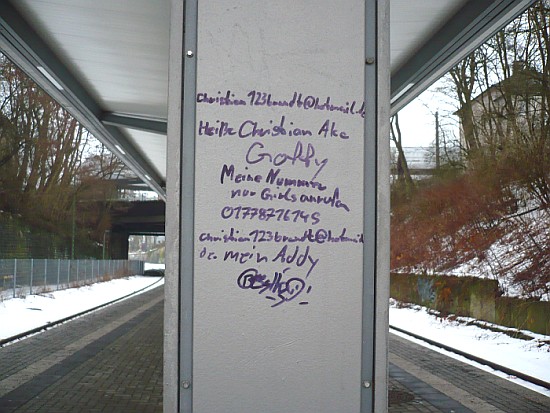 christian123brandt@hotmail.d
Heiße Christian Ake
Goffy
Meine Nummer
nur Girls anrufen
01778776145
christian123brandt@hotmail
de mein Addy